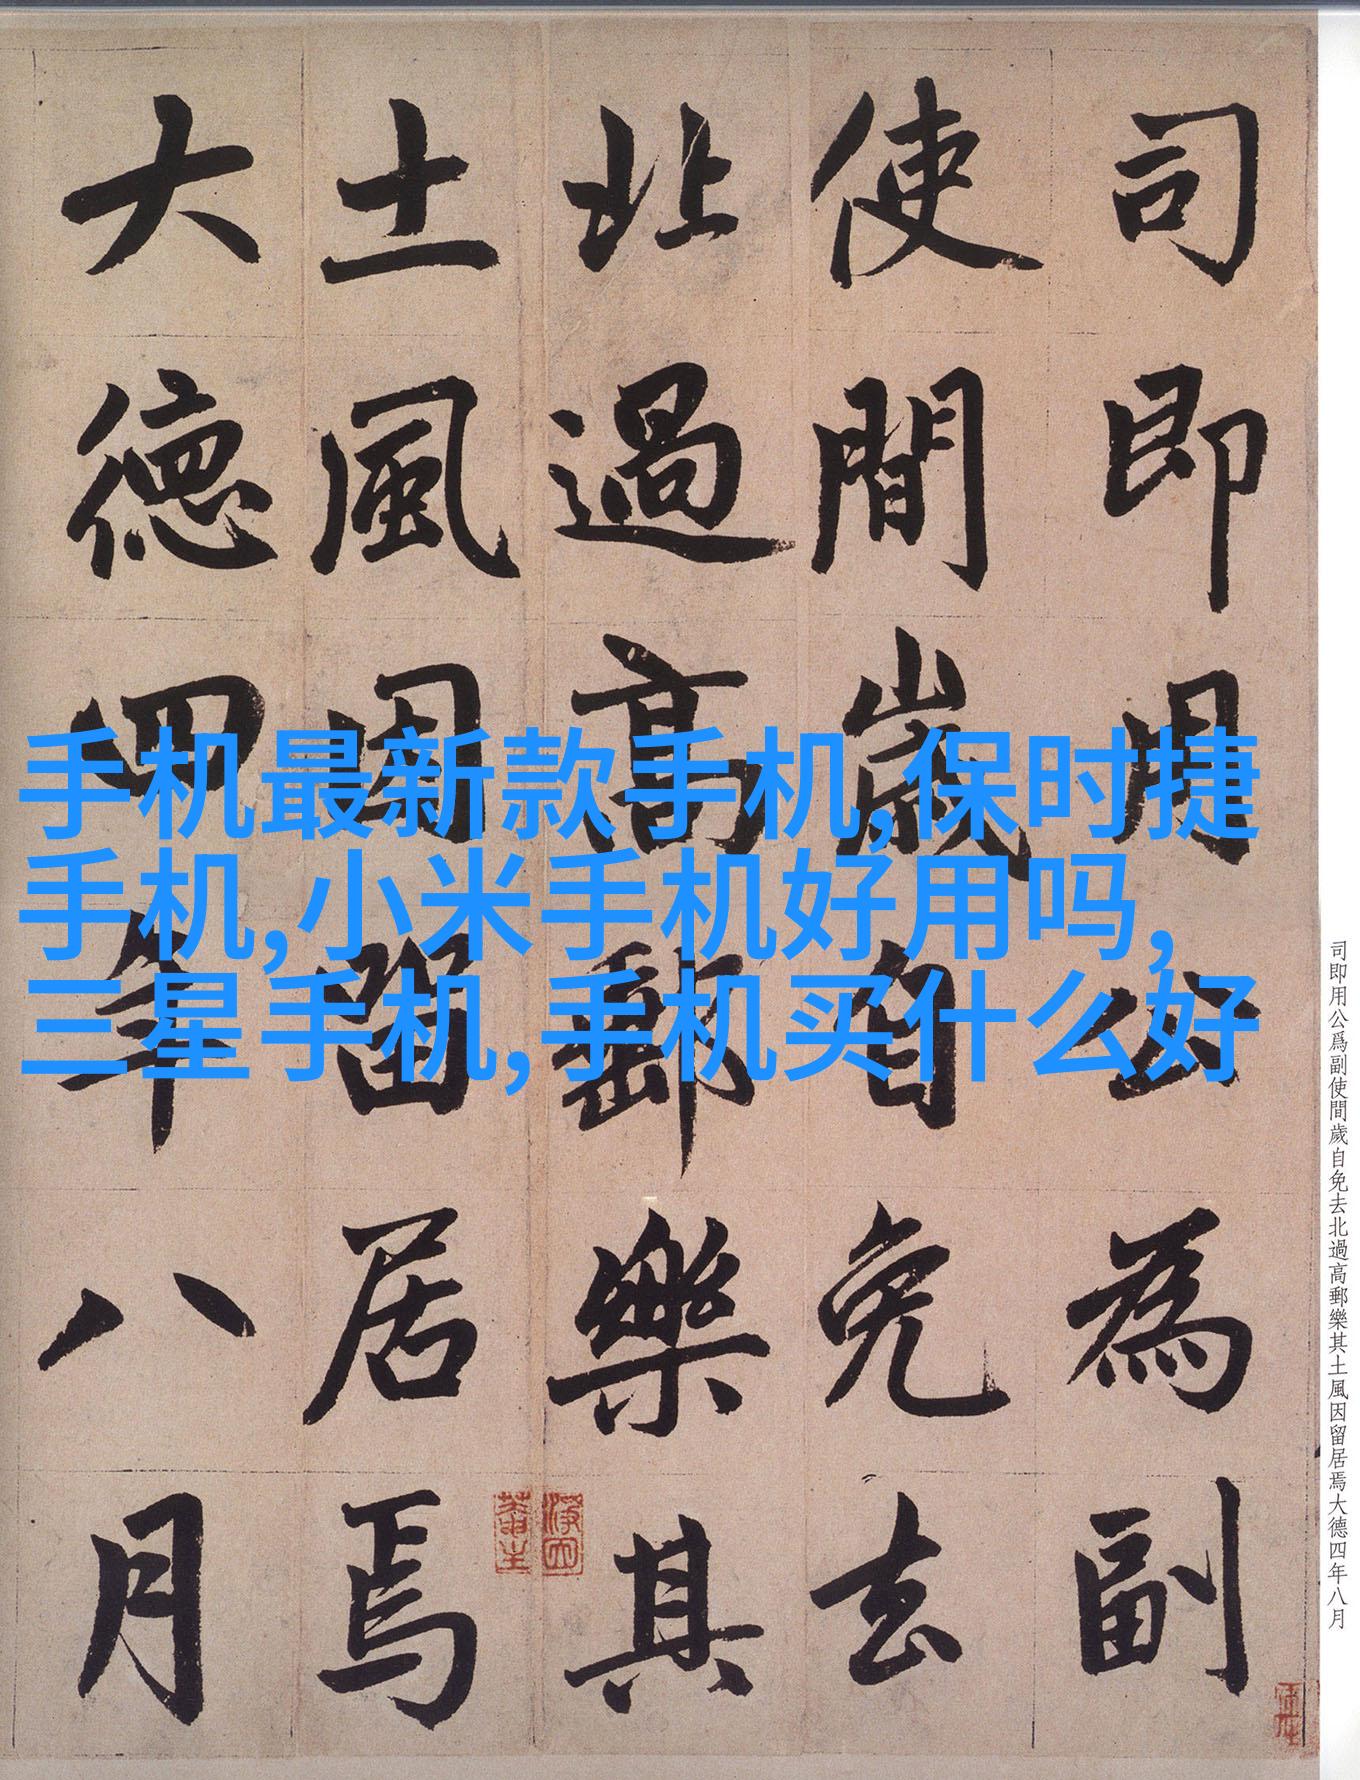 司即用公為副
使間歲自免去
北過高郵樂其
土風因留居焉
大德四年八月
手机最新款手机,保时捷
手机,小米手机好用吗,
三星手机,手机买什么好
司即用公爲副使間歲自免去北過高郵樂其土風因留居焉大德四年八月